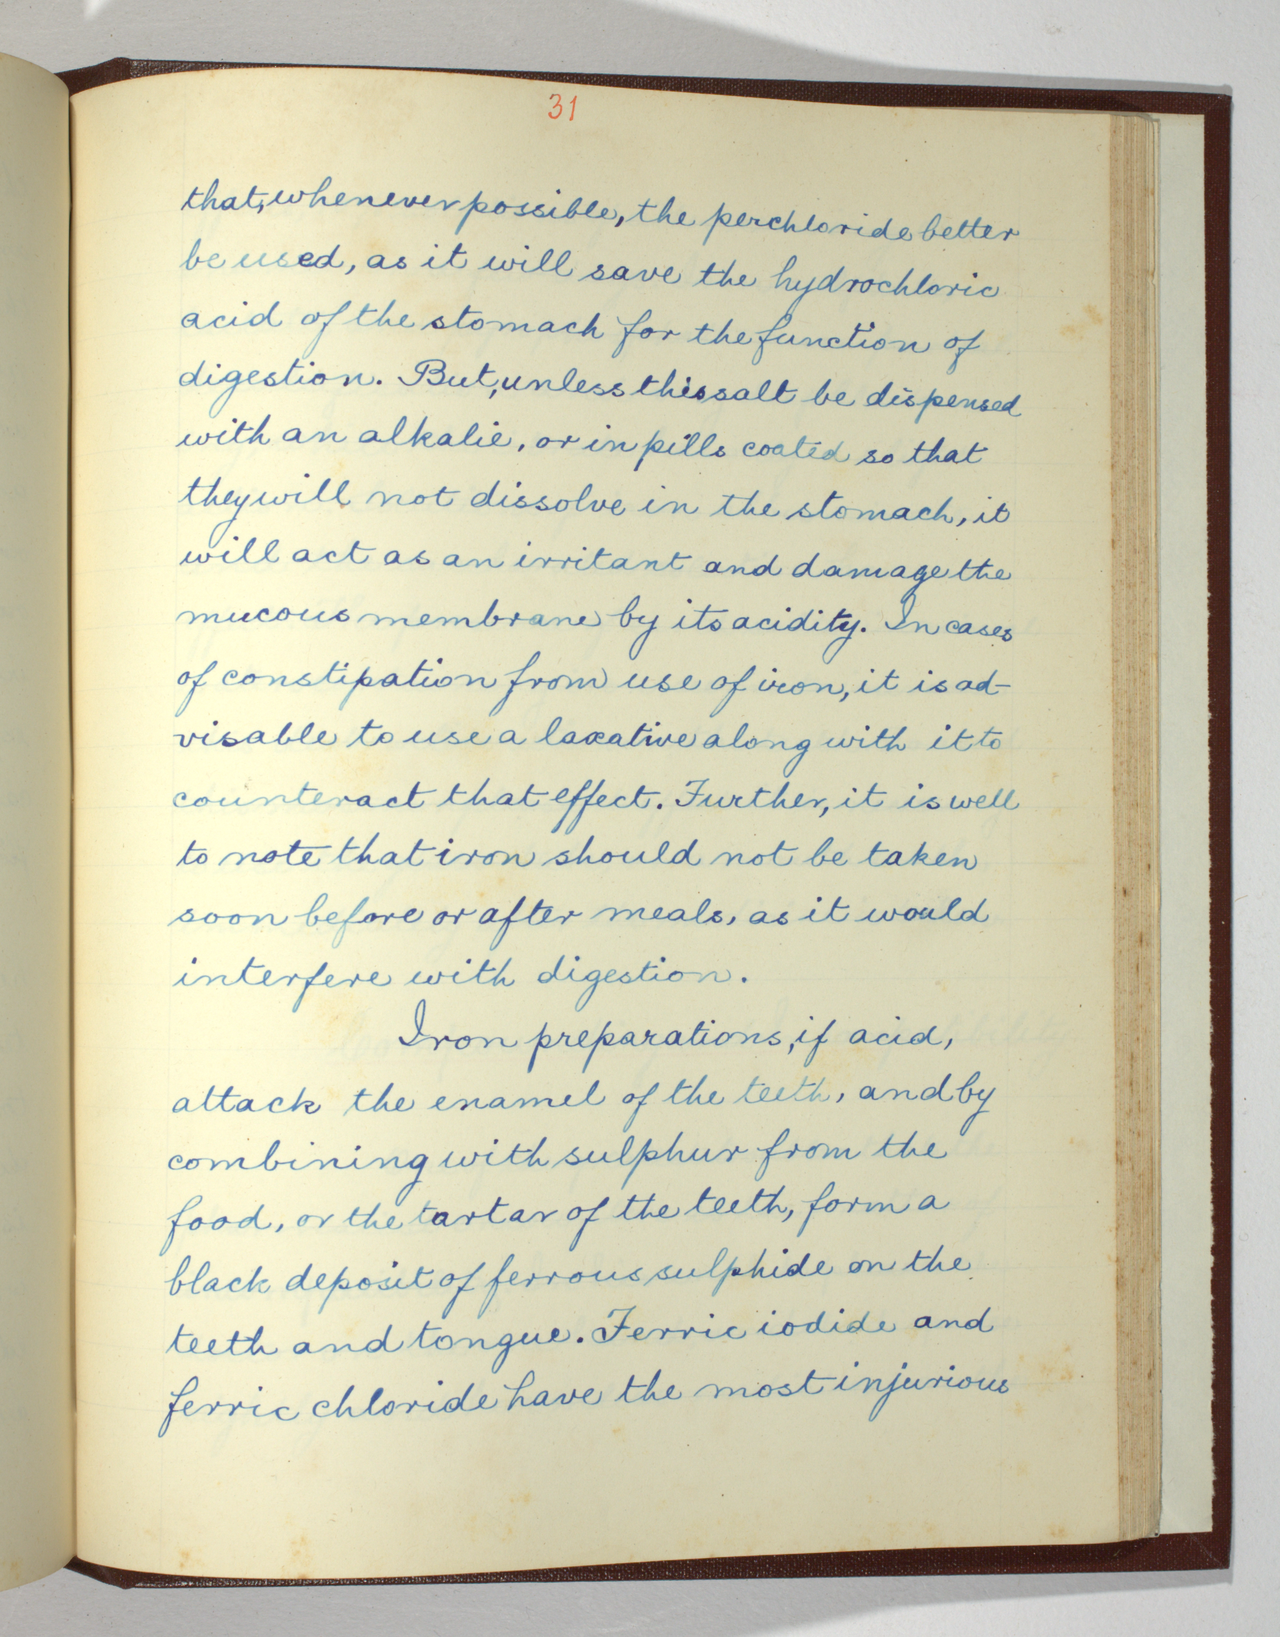 31
that, whenever possible, the perchloride better
be used, as it will save the hydrochloric
acid of the stomach for the function of
digestion. But, unless this salt be dispensed
with an alkalie, or in pills coated so that
they will not dissolve in the stomach, it
will act as an irritant and damage the
mucous membrane by its acidity. In cases
of constipation from use of iron, it is ad-
visable to use a laxative along with it to
counteract that effect. Further, it is well
to note that iron should not be taken
soon before or after meals, as it would
interfere with digestion.
Iron preparations, if acid,
attack the enamel of the teeth, and by
combining with sulphur from the
food, or the tartar of the teeth, form a
black deposit of ferrous sulphide on the
teeth and tongue. Ferric iodide and
ferric chloride have the most injurious